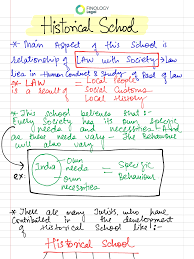 FINOLOGY
Legal
Historical School
* Main Aspect of this School is
relationship of Law with Society → Law
lies in Human Conduct & Study of Past of Law
ex: LAW = Local People
is a result of Social Customs
Local History
* This school believes that:-
Every Society has its Own Specific
(needs and necessities) And
as these needs vary - The Behaviour
will also vary
ex:
India → Own needs
→ Own necessities
= Specific
Behaviour
* There are many Jurists, who have
Contributed in the development
of Historical School like:-
Historical School